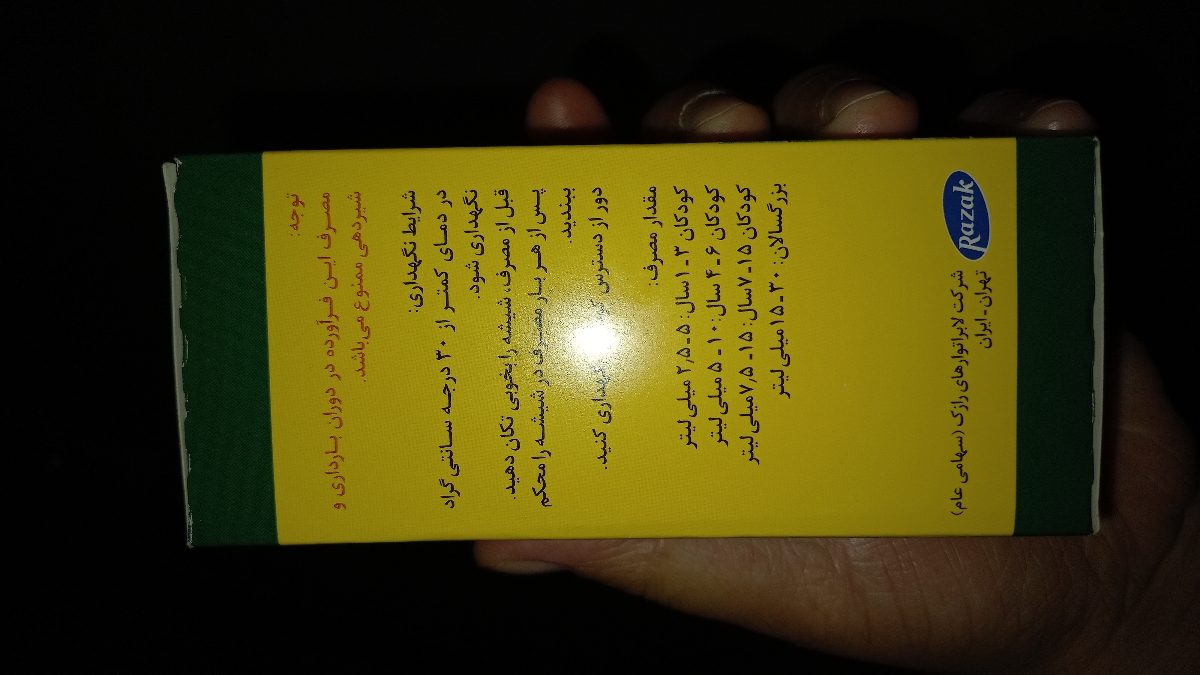 توجه:
مصرف این فرآورده در دوران بارداری و
شیردهی ممنوع می‌باشد.
شرایط نگهداری:
در دمای کمتر از ۳۰ درجه سانتی گراد
نگهداری شود.
قبل از مصرف، شیشه را بخوبی تکان دهید.
پس از هر بار مصرف در شیشه را محکم
ببندید.
دور از دسترس نگهداری کنید.
مقدار مصرف:
کودکان ۳-۱ سال: ۵-۲٫۵ میلی لیتر
کودکان ۶-۴ سال: ۱۰-۵ میلی لیتر
کودکان ۱۵-۷ سال: ۱۵-۷٫۵ میلی لیتر
بزرگسالان: ۳۰-۱۵ میلی لیتر
Razak
شرکت لابراتوارهای رازک (سهامی عام)
تهران-ایران